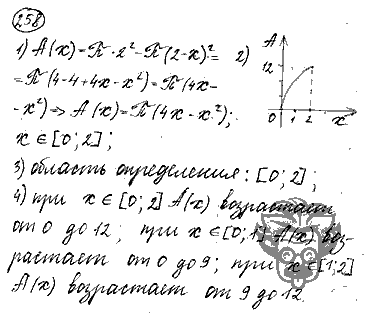 258
1) A(x) = П·2² – П(2-x)² =
= П(4-4+4x-x²) = П(4x-
-x²) ⇒ A(x) = П(4x-x²);
x ∈ [0; 2];
2)
A
12
0 1 2 x
3) область определения: [0; 2];
4) при x ∈ [0; 2] A(x) возрастает
от 0 до 12; при x ∈ [0; 1] A(x) воз-
растает от 0 до 9; при x ∈ [1; 2]
A(x) возрастает от 9 до 12.